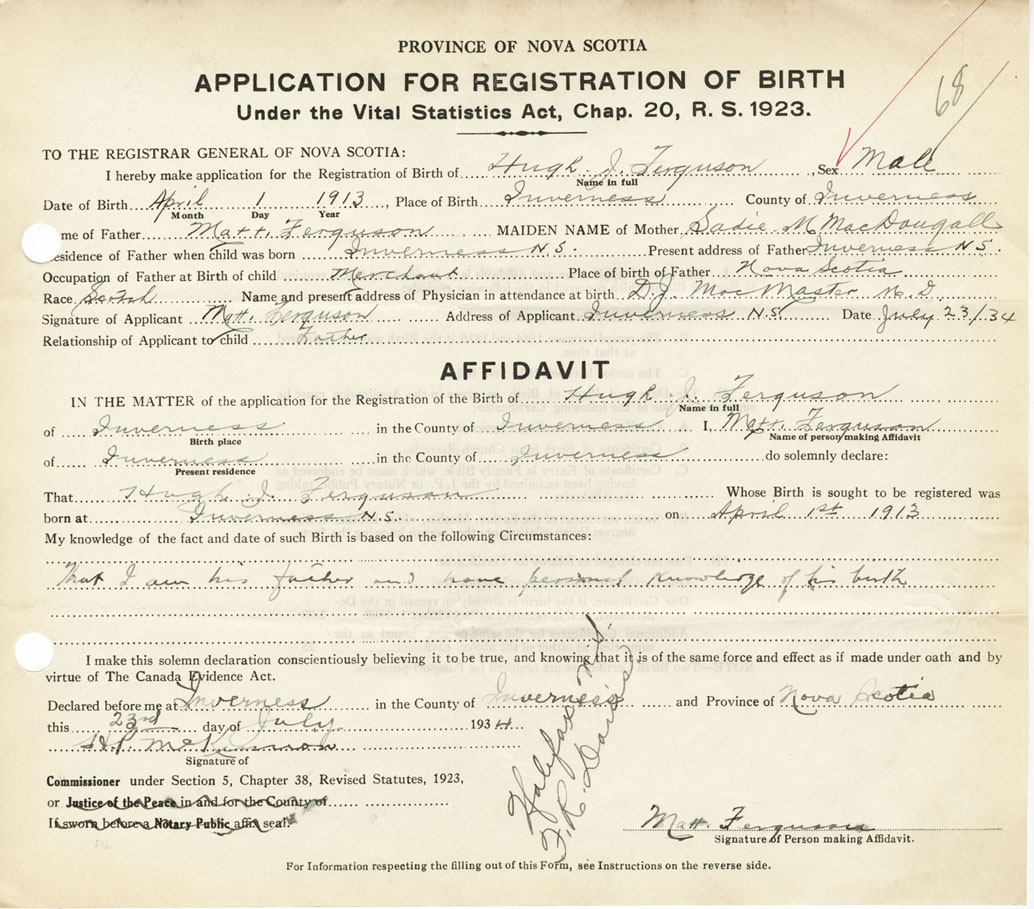 PROVINCE OF NOVA SCOTIA
APPLICATION FOR REGISTRATION OF BIRTH
Under the Vital Statistics Act, Chap. 20, R. S. 1923.
68
TO THE REGISTRAR GENERAL OF NOVA SCOTIA:
I hereby make application for the Registration of Birth of Hugh J. Ferguson, Sex Male
Name in full
Date of Birth April 1 1913, Place of Birth Inverness County of Inverness
Month Day Year
me of Father Matt. Ferguson MAIDEN NAME of Mother Sadie M MacDougall
esidence of Father when child was born Inverness N S. Present address of Father Inverness N S.
Occupation of Father at Birth of child Merchant Place of birth of Father Nova Scotia
Race Scotch Name and present address of Physician in attendance at birth D. J. MacMaster M. D.
Signature of Applicant Matt. Ferguson Address of Applicant Inverness N.S. Date July 23/34
Relationship of Applicant to child Father
AFFIDAVIT
IN THE MATTER of the application for the Registration of the Birth of Hugh J. Ferguson
Name in full
of Inverness in the County of Inverness I, Matt. Ferguson
Birth place Name of person making Affidavit
of Inverness in the County of Inverness do solemnly declare:
Present residence
That Hugh J. Ferguson Whose Birth is sought to be registered was
born at Inverness N.S. on April 1st 1913
My knowledge of the fact and date of such Birth is based on the following Circumstances:
that I am his father and have personal knowledge of his birth
I make this solemn declaration conscientiously believing it to be true, and knowing that it is of the same force and effect as if made under oath and by
virtue of The Canada Evidence Act.
Declared before me at Inverness in the County of Inverness and Province of Nova Scotia
this 23rd day of July 1934
McKinnon
Signature of
Commissioner under Section 5, Chapter 38, Revised Statutes, 1923,
or Justice of the Peace in and for the County of
If sworn before a Notary Public affix seal.
Halifax N.S.
F. R. Davis
Matt. Ferguson
Signature of Person making Affidavit.
For Information respecting the filling out of this Form, see Instructions on the reverse side.